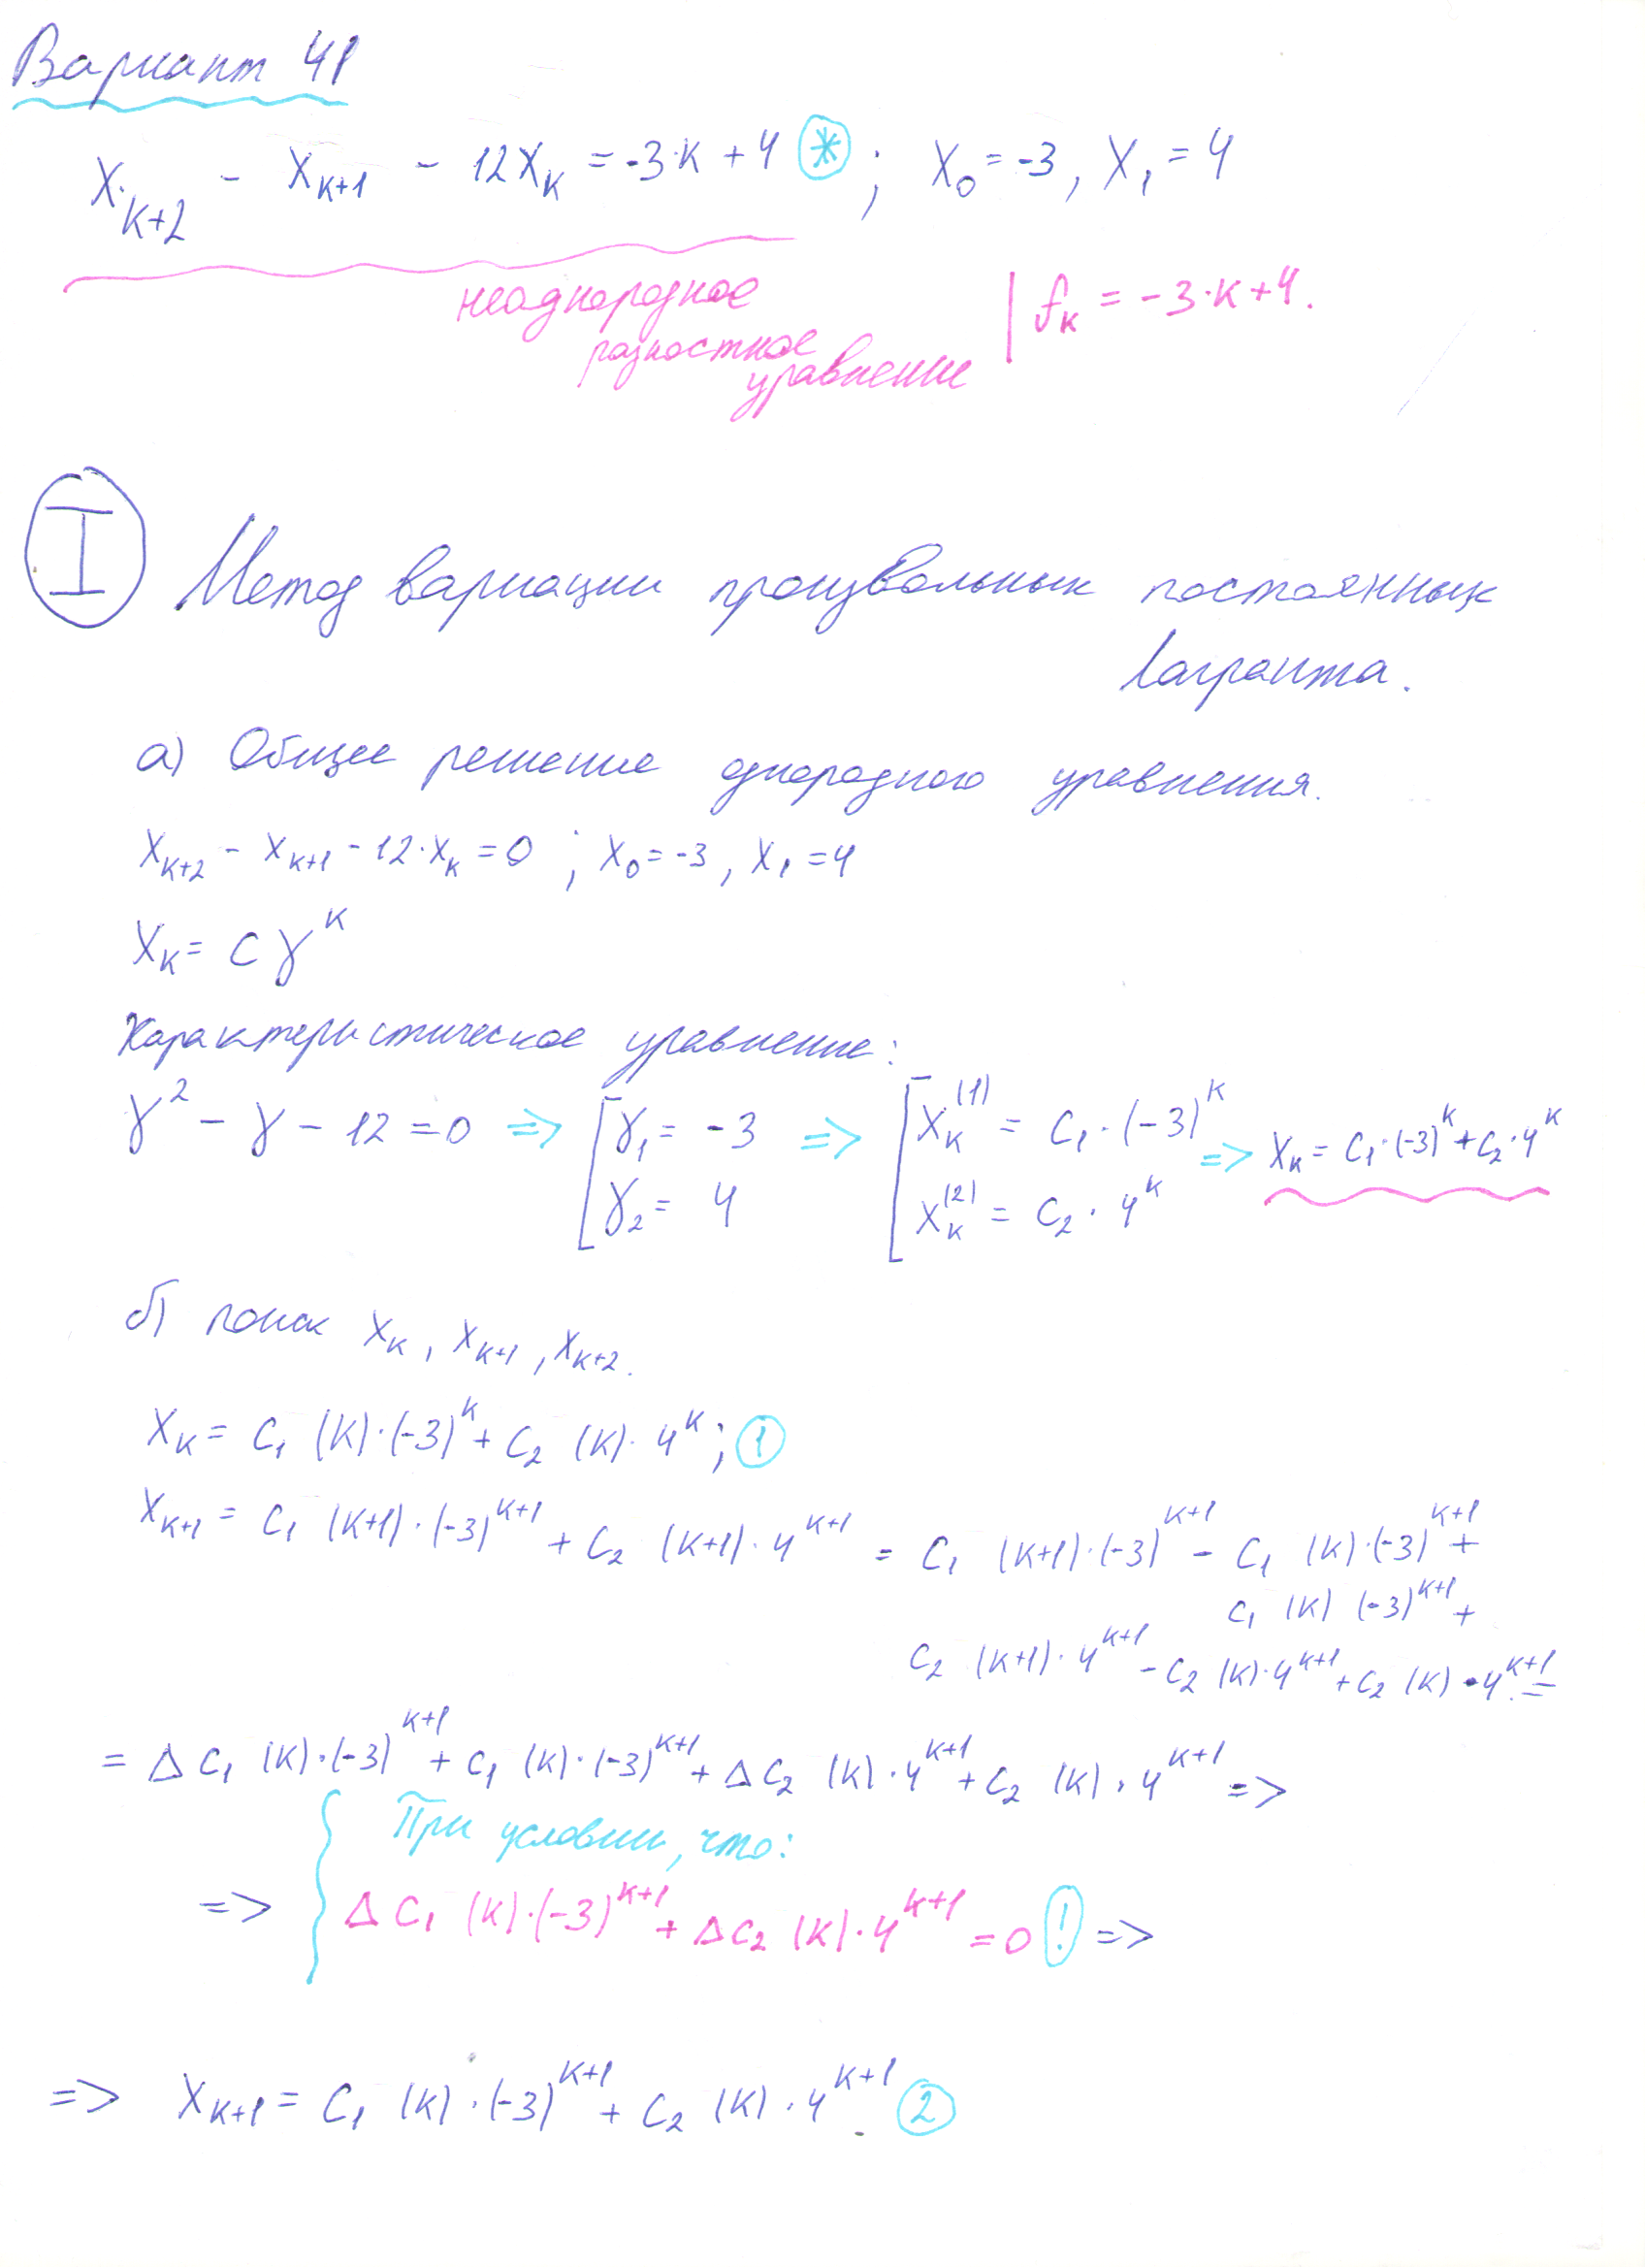 Вариант 41
X_{K+2} - X_{K+1} - 12X_K = -3·K + 4 (*) ; X_0 = -3, X_1 = 4
неоднородное
разностное
уравнение
| f_K = -3·K+4.
I Метод вариации произвольных постоянных
Лагранжа.
а) Общее решение однородного уравнения.
X_{K+2} - X_{K+1} - 12·X_K = 0 ; X_0 = -3, X_1 = 4
X_K = C γ^K
Характеристическое уравнение:
γ^2 - γ - 12 = 0 => [ γ_1 = -3 ; γ_2 = 4 => [ X_K^{(1)} = C_1·(-3)^K ; X_K^{(2)} = C_2·4^K => X_K = C_1·(-3)^K + C_2·4^K
б) поиск X_K, X_{K+1}, X_{K+2}.
X_K = C_1 (K)·(-3)^K + C_2 (K)·4^K; (1)
X_{K+1} = C_1 (K+1)·(-3)^{K+1} + C_2 (K+1)·4^{K+1} = C_1 (K+1)·(-3)^{K+1} - C_1 (K)·(-3)^{K+1} +
C_1 (K) (-3)^{K+1} +
C_2 (K+1)·4^{K+1} - C_2 (K)·4^{K+1} + C_2 (K)·4^{K+1} =
= Δ C_1 (K)·(-3)^{K+1} + C_1 (K)·(-3)^{K+1} + Δ C_2 (K)·4^{K+1} + C_2 (K)·4^{K+1} =>
При условии, что:
=> { Δ C_1 (K)·(-3)^{K+1} + Δ C_2 (K)·4^{K+1} = 0 (!) =>
=> X_{K+1} = C_1 (K)·(-3)^{K+1} + C_2 (K)·4^{K+1}. (2)